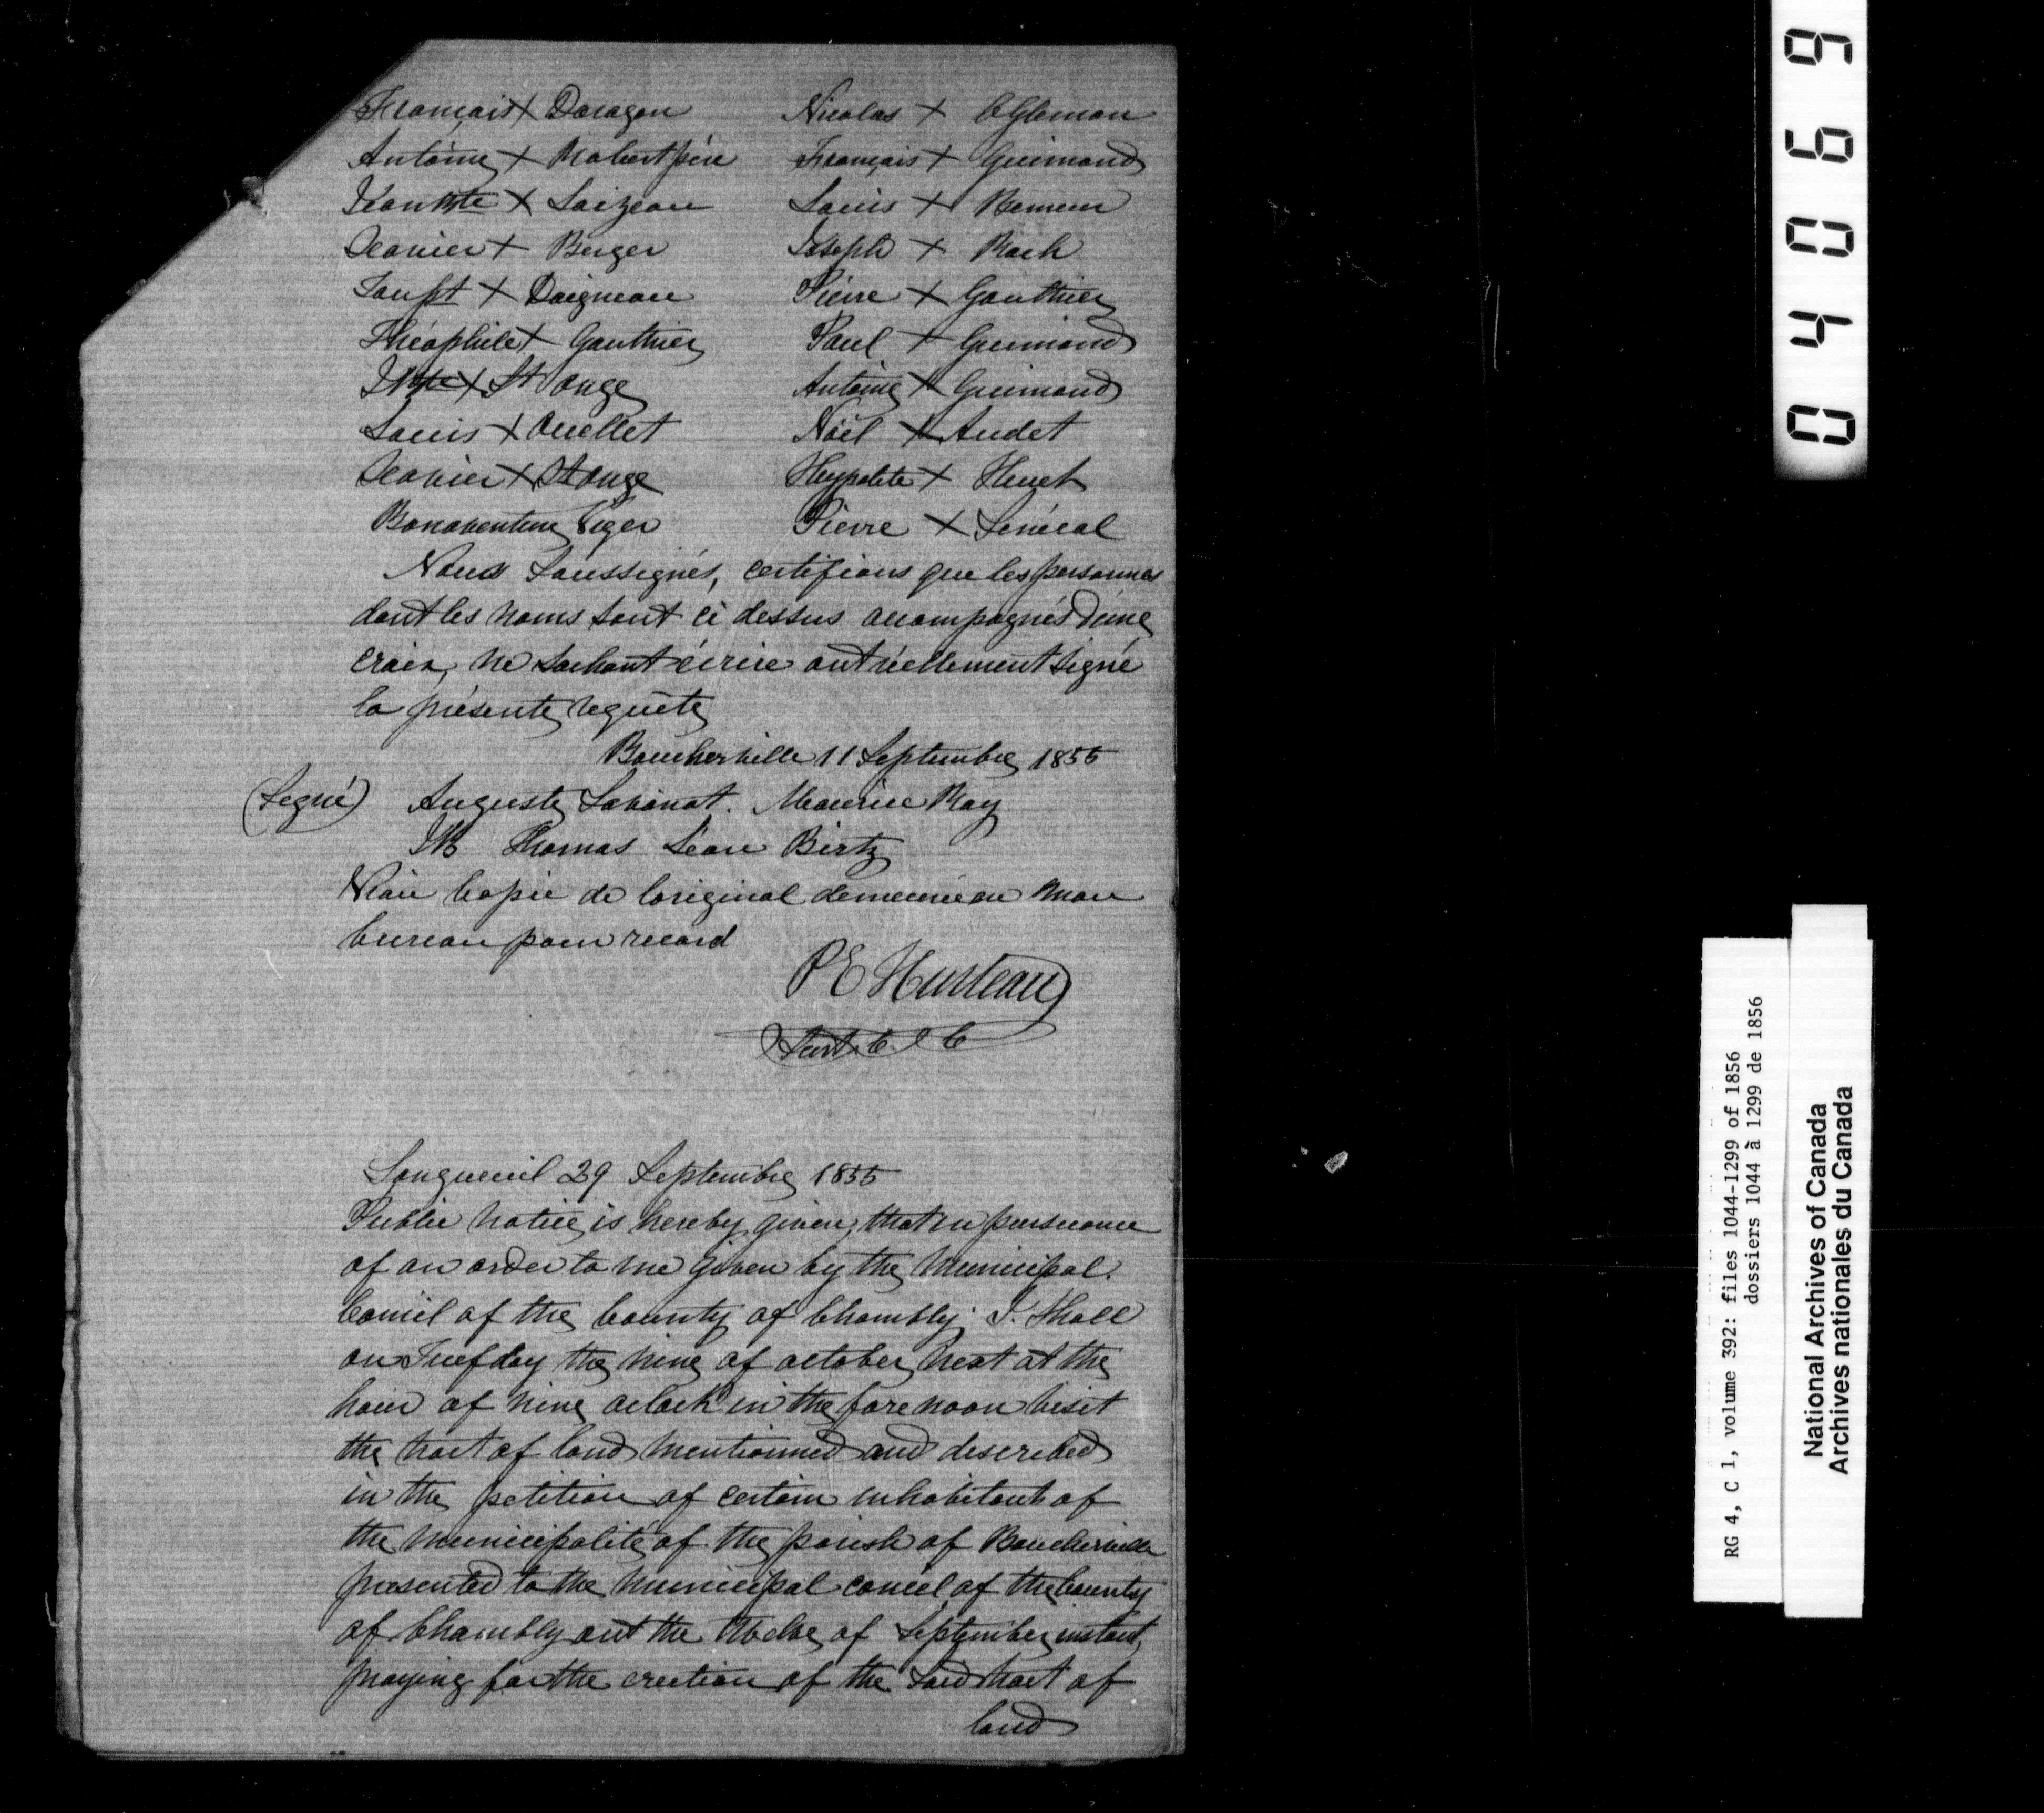 Français X Daragon Nicolas X
Antoine X Robert père Français X Guimond
Jean Bte X Laizeau Louis X
X Berger Joseph X Roch
X Daigneau Pierre X Gauthier
Théophile X Gauthier Paul X Guimond
J Bte X St Onge Antoine X Guimond
Louis X Ouellet Noël X Audet
X St Onge Hypolite X Huet
Bonaventure Viger Pierre X Senécal
Nous Soussignés, certifions que les personnes
dont les noms sont ci dessus accompagnés d'une
croix, ne sachant écrire ont réellement signé
la présente requête
Boucherville 11 Septembre 1855
(Signé) Auguste Maurice Roy
JB Thomas Léon Birtz
Vraie Copie de l'original demeuré en mon
bureau pour record
P E Hurteau
Longueuil 29 Septembre 1855
Public notice is hereby given, that in pursuance
of an order to me given by the Municipal
Concil of the County of Chambly. I. Shall
on Tuesday the nine of october next at the
hour of nine oclock in the forenoon visit
the tract of land mentionned and described
in the petition of certain inhabitants of
the municipalité of the parish of Boucherville
presented to the municipal concil of the County
of Chambly ont the twelve of September instant,
praying for the erection of the Said tract of
land
04069
RG 4, C 1, volume 392: files 1044-1299 of 1856
dossiers 1044 à 1299 de 1856
National Archives of Canada
Archives nationales du Canada